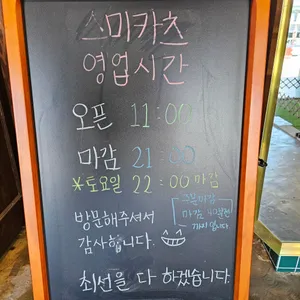 스미카츠
영업시간
오픈 11:00
마감 21:00
*토요일 22:00 마감
방문해주셔서
감사합니다.
마감
까지 입니다
최선을 다 하겠습니다.